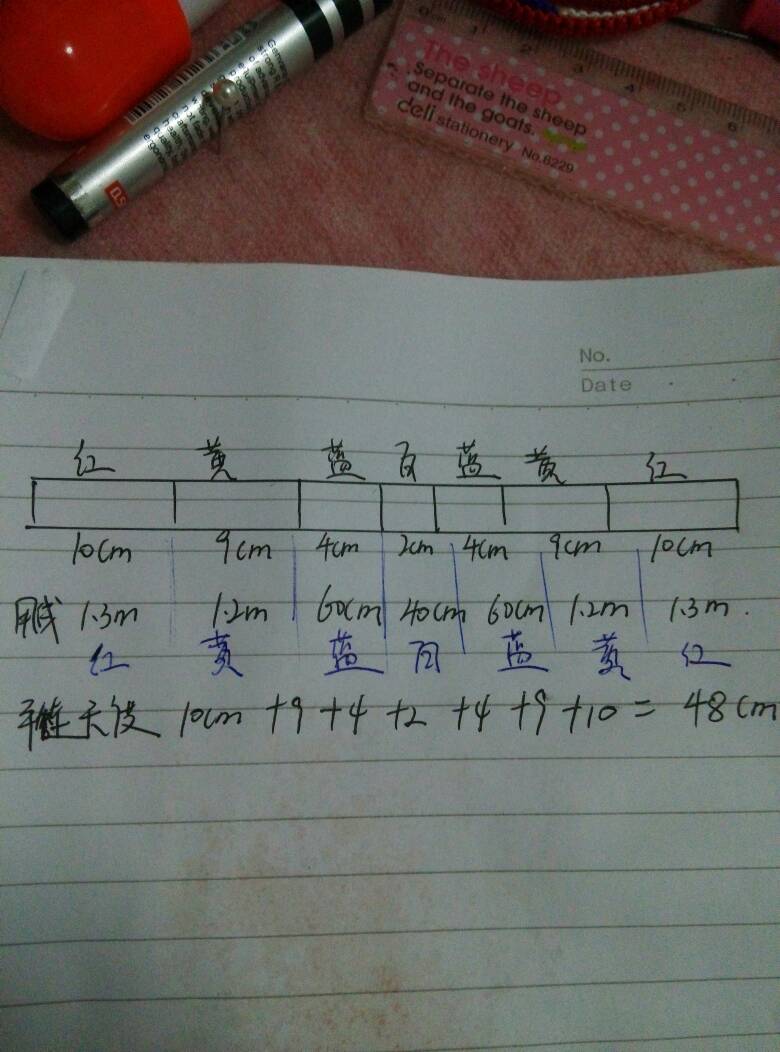 The sheep
Separate the sheep
and the goats.
deli stationery No.6229
0cm 1 2 3 4 5 6
No.
Date
红 黄 蓝 白 蓝 黄 红
10cm 9cm 4cm 2cm 4cm 9cm 10cm
用线 1.3m 1.2m 60cm 40cm 60cm 1.2m 1.3m.
红 黄 蓝 白 蓝 黄 红
长度 10cm +9 +4 +2 +4 +9 +10 = 48cm